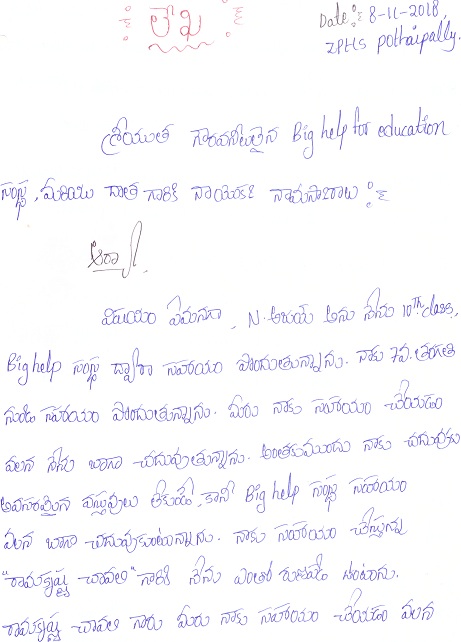 లేఖ
Date: 8-11-2018,
ZPHS pothaipally.
శ్రీయుత గౌరవనీయులైన Big help for education
సంస్థ, మరియు దాత గారికి నా యొక్క నామస్కారాలు
ఆర్యా,
విషయం ఏమనగా, N. అజయ్ అను నేను 10th class,
Big help సంస్థ ద్వారా సహాయం పొందుతున్నాను. నాకు 7వ. తరగతి
నుండి సహాయం పొందుతున్నాను. మీరు నాకు సహాయం చేయడం
వలన నేను బాగా చదువుతున్నాను. అంతకుముందు నాకు చదువుకు
అవసరమైన వస్తువులు లేకుండే, కానీ Big help సంస్థ సహాయం
వలన బాగా చదువుకుంటున్నాను. నాకు సహాయం చేస్తున్న
"రామకృష్ణ చావలి" గారికి నేను ఎంతో రుణపడి ఉంటాను.
రామకృష్ణ చావలి గారు మీరు నాకు సహాయం చేయడం వలన